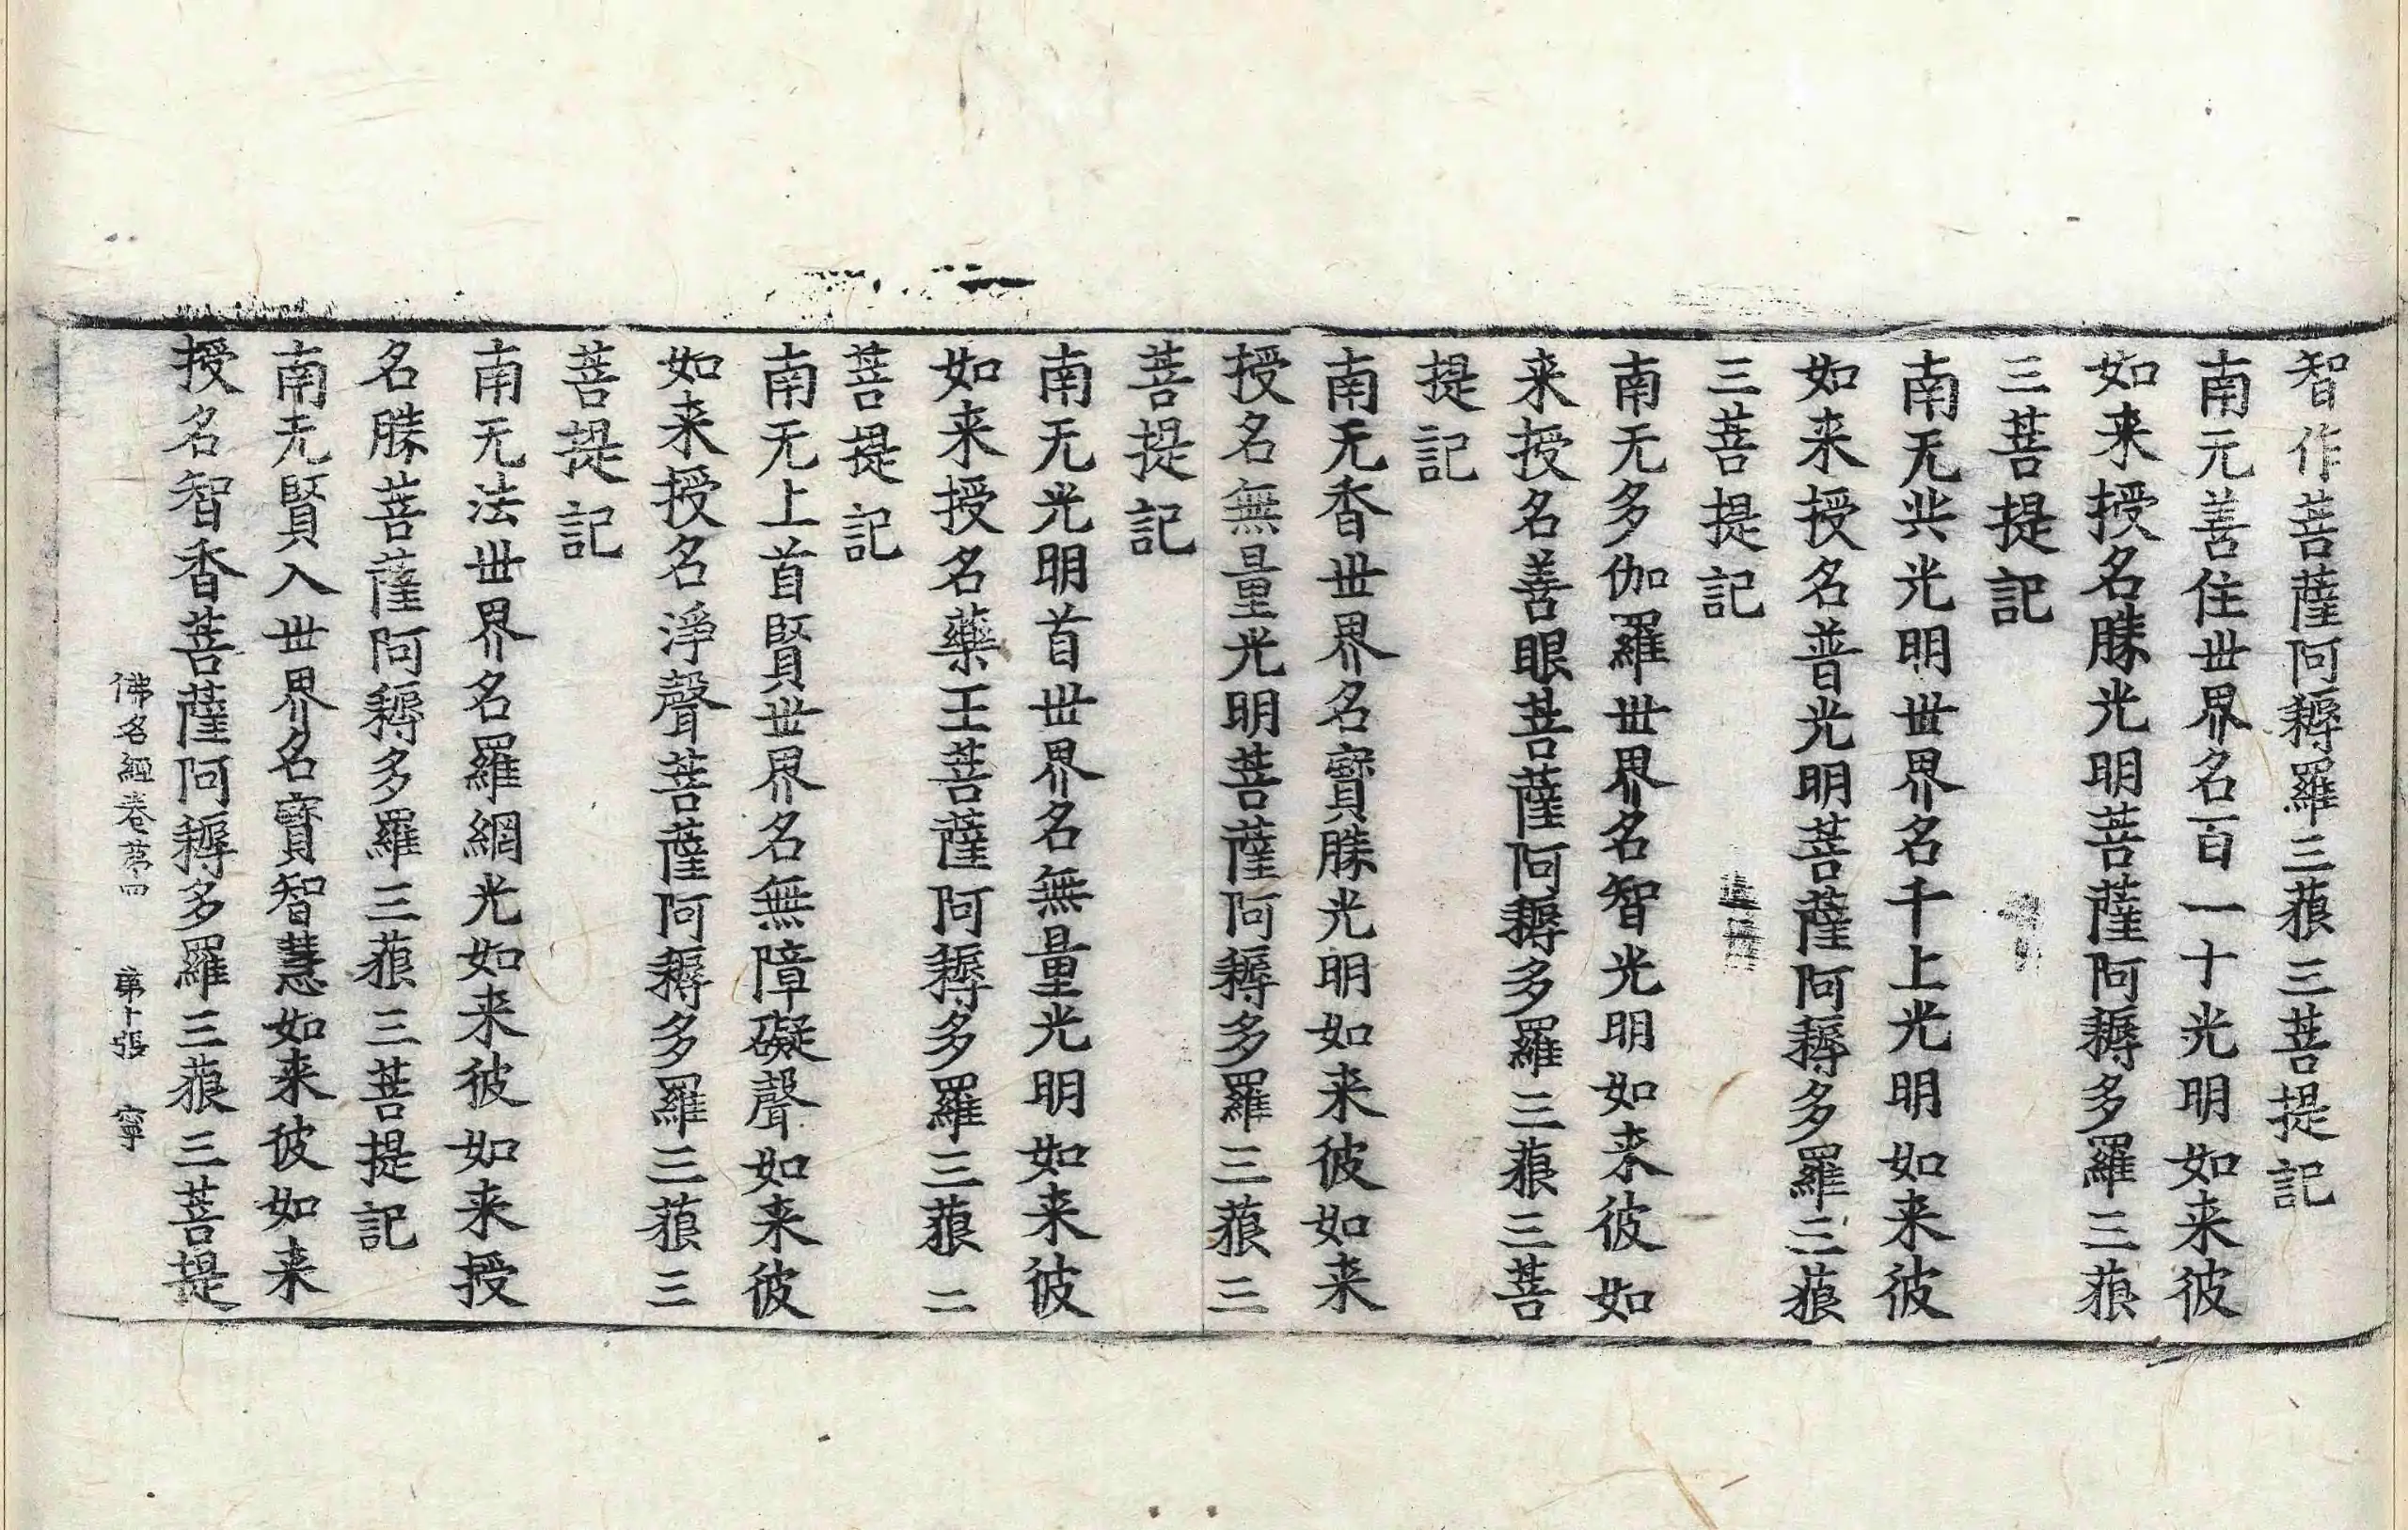 智作菩薩阿耨羅三藐三菩提記
南无善住世界名百一十光明如来彼
如来授名勝光明菩薩阿耨多羅三藐
三菩提記
南无炎光明世界名千上光明如来彼
如来授名普光明菩薩阿耨多羅三藐
三菩提記
南无多伽羅世界名智光明如来彼如
来授名善眼菩薩阿耨多羅三藐三菩
提記
南无香世界名寶勝光明如来彼如来
授名無量光明菩薩阿耨多羅三藐三
菩提記
南无光明首世界名無量光明如来彼
如来授名藥王菩薩阿耨多羅三藐二
菩提記
南无上首賢世界名無障礙聲如来彼
如来授名淨聲菩薩阿耨多羅三藐三
菩提記
南无法世界名羅網光如来彼如来授
名勝菩薩阿耨多羅三藐三菩提記
南无賢入世界名寶智慧如来彼如来
授名智香菩薩阿耨多羅三藐三菩提
佛名經卷第四 第十張 寧